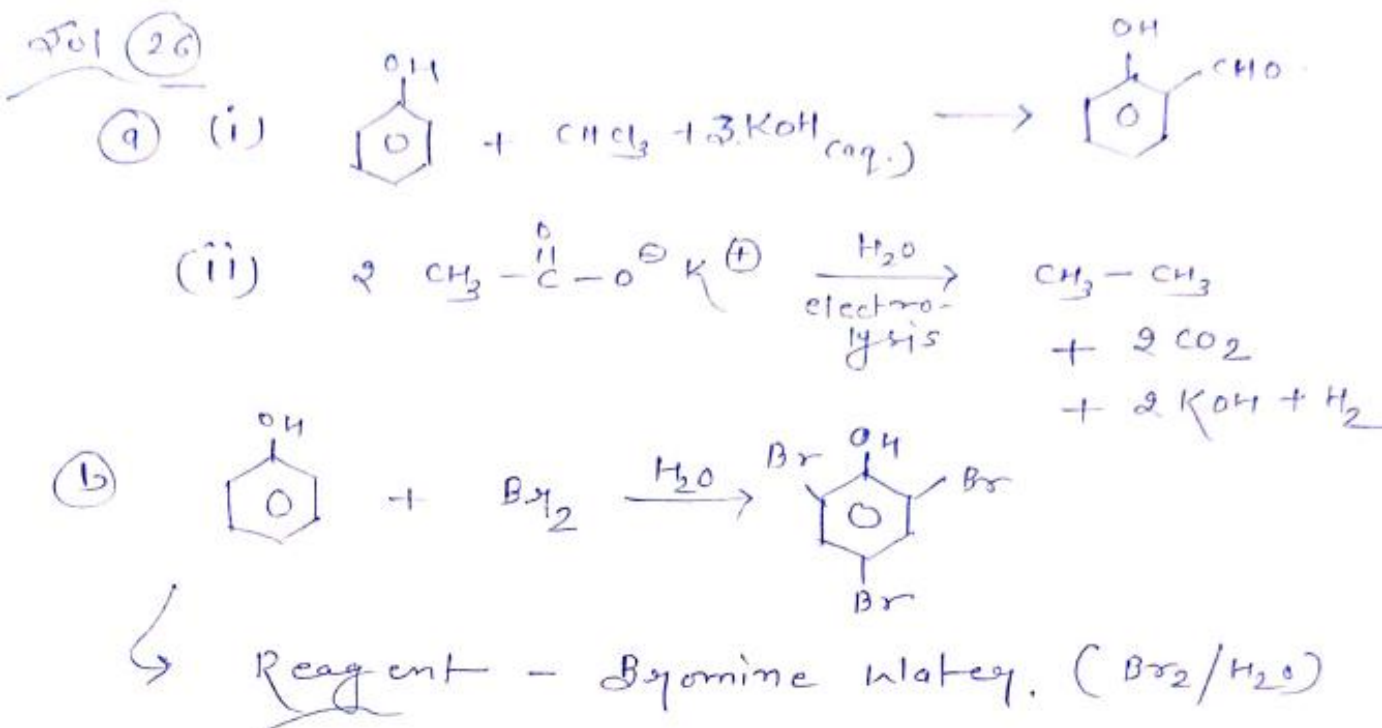 Sol 26
a (i) OH + CHCl3 + 3KOH (aq.) ⟶ OH CHO
(ii) 2 CH3 - C(=O) - O⊖ K⊕ H2O electro-lysis ⟶ CH3 - CH3
+ 2 CO2
+ 2 KOH + H2
b OH + Br2 H2O ⟶ Br OH Br Br
↳ Reagent - Bromine Water. (Br2/H2O)